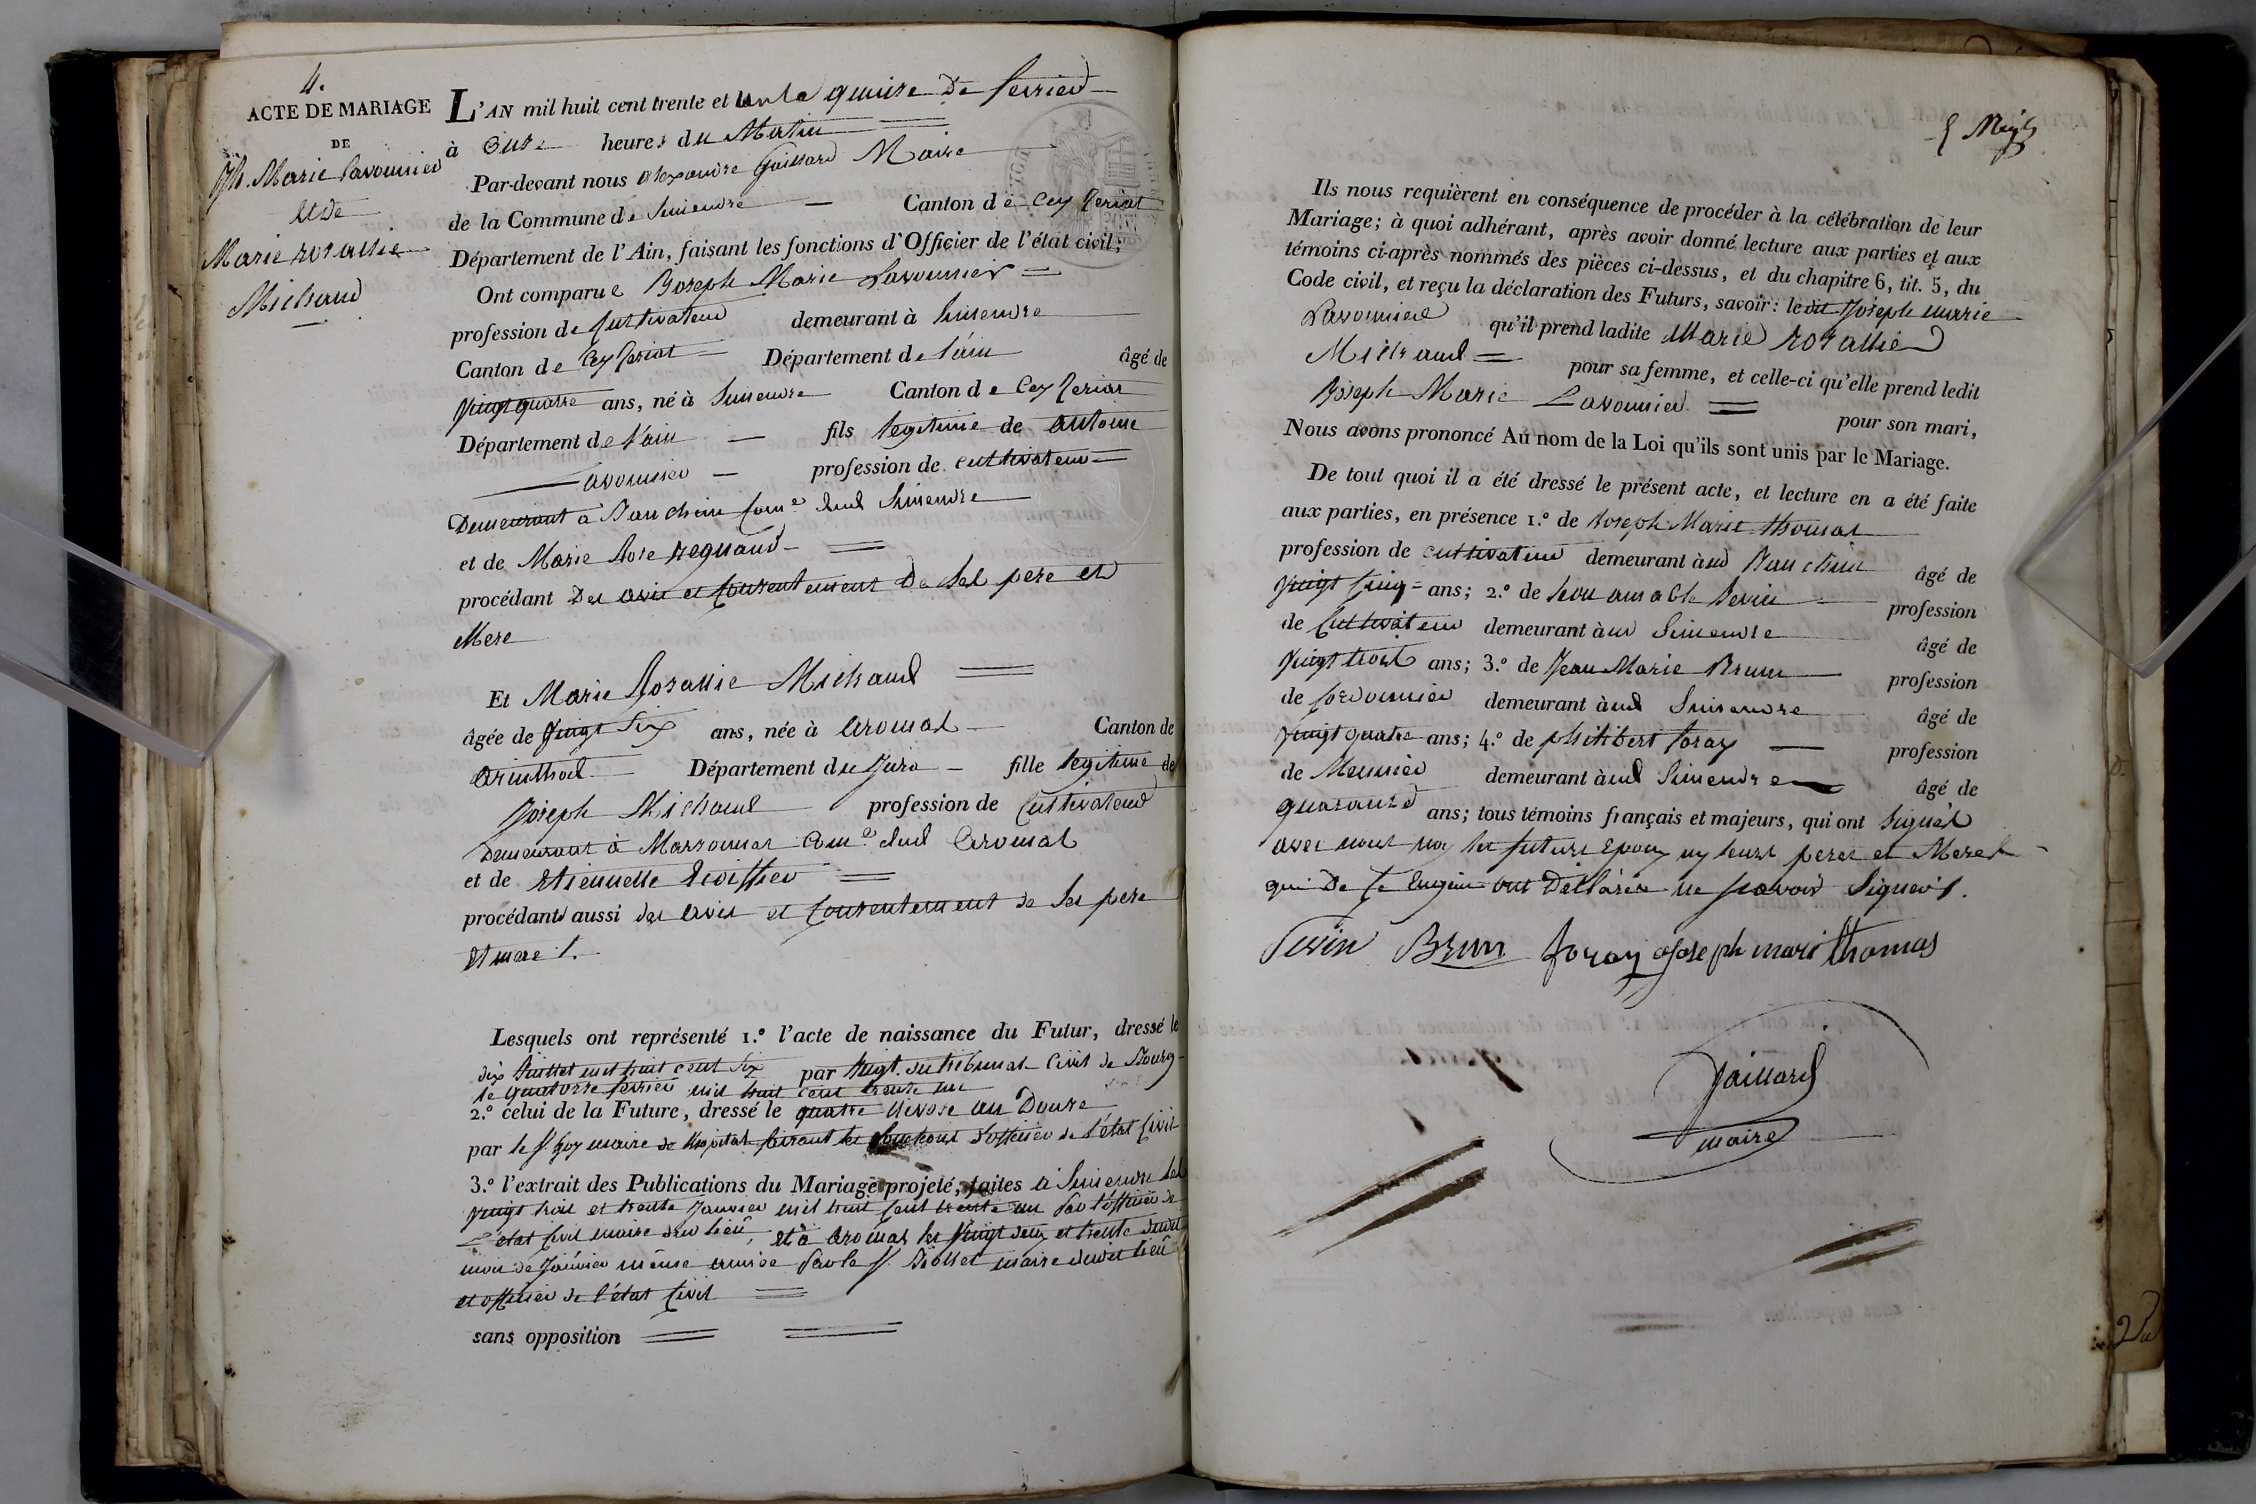 4.
ACTE DE MARIAGE
DE
Jph. Marie Lavouvier
et de
Marie rosallie
Michaud
L'AN mil huit cent trente et un le quinze De fevrier
à onze heures du Matin
Par-devant nous alexandre Gaillard Maire
de la Commune de Simendre Canton de Ceyzeriat
Département de l'Ain, faisant les fonctions d'Officier de l'état civil;
Ont comparu e Joseph Marie Lavouvier
profession de Cultivateur demeurant à Simendre
Canton de Ceyzeriat Département de l'ain âgé de
vingt quatre ans, né à Simendre Canton de Ceyzeriat
Département de l'ain fils legitime de antoine
Lavouvier profession de cultivateur
Demeurant à Banchin Come dud Simendre
et de Marie Rose regnaud
procédant Des avis et Consentement De Ses pere et
Mere
Et Marie Rosallie Michaud
âgée de vingt Six ans, née à aromas Canton de
arinthod Département du Jura fille legitime de
Joseph Michaud profession de Cultivateur
Demeurant à Marsonnas Come dud aromas
et de Etiennette
procédant aussi des avis et Consentement de Ses pere
et mere /.
Lesquels ont représenté 1.º l'acte de naissance du Futur, dressé le
dix Juillet mil huit cent Six par Jugt. du tribunal Civil de Bourg
le quatorze fevrier mil huit cent trente un
2.º celui de la Future, dressé le quatre nivose an Douze
par le S. Goy maire de lhopital faisant les fonctions d'officier de l'état Civil
3.º l'extrait des Publications du Mariage projeté, faites à Simendre les
vingt trois et trente Janvier mil huit Cent trente un Par l'officier de
L'état Civil maire dud lieu, et à aromas les vingt deux et trente dudit
mois de Janvier même année Par le S. maire dudit lieu
et officier de l'état Civil
sans opposition
Ils nous requièrent en conséquence de procéder à la célébration de leur
Mariage; à quoi adhérant, après avoir donné lecture aux parties et aux
témoins ci-après nommés des pièces ci-dessus, et du chapitre 6, tit. 5, du
Code civil, et reçu la déclaration des Futurs, savoir: le dit Joseph marie
Lavouvier qu'il prend ladite Marie rosallie
Michaud pour sa femme, et celle-ci qu'elle prend ledit
Joseph Marie Lavouvier pour son mari,
Nous avons prononcé Au nom de la Loi qu'ils sont unis par le Mariage.
De tout quoi il a été dressé le présent acte, et lecture en a été faite
aux parties, en présence 1.º de Joseph Marie thomas
profession de cultivateur demeurant à ud Banchin âgé de
vingt Cinq ans; 2.º de Sevin profession
de Cultivateur demeurant à ud Simendre âgé de
vingt trois ans; 3.º de Jean Marie Brun profession
de Cordonnier demeurant à ud Simendre âgé de
vingt quatre ans; 4.º de philibert foray profession
de Meunier demeurant à ud Simendre âgé de
quarante ans; tous témoins français et majeurs, qui ont Signés
avec nous non les futurs epoux ny leurs peres et Meres
qui De Ce Enquis ont Déclarés ne Scavoir Signer /.
Sevin Brun foray joseph mari thomas
Gaillard
maire